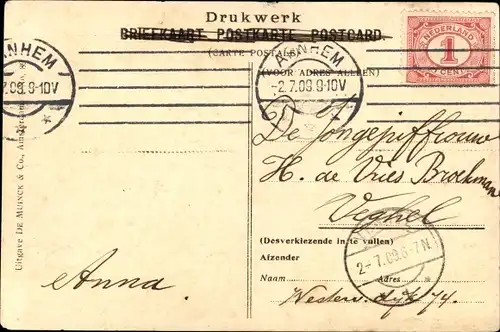 Drukwerk
BRIEFKAART POSTKARTE POSTCARD.
(CARTE POSTALE)
(VOOR ADRES ALLEEN)
NEDERLAND
1
CENT
ARNHEM
2.7.09.9-10V
ARNHEM
-2.7.09.9-10V
De Jongejuffrouw
H. de Vries Broekman
Veghel
(Desverkiezende in te vullen)
Afzender
Naam Adres
Anna.
74.
2-7.09.6-7N
Uitgave DE MUINCK & Co., Amsterdam